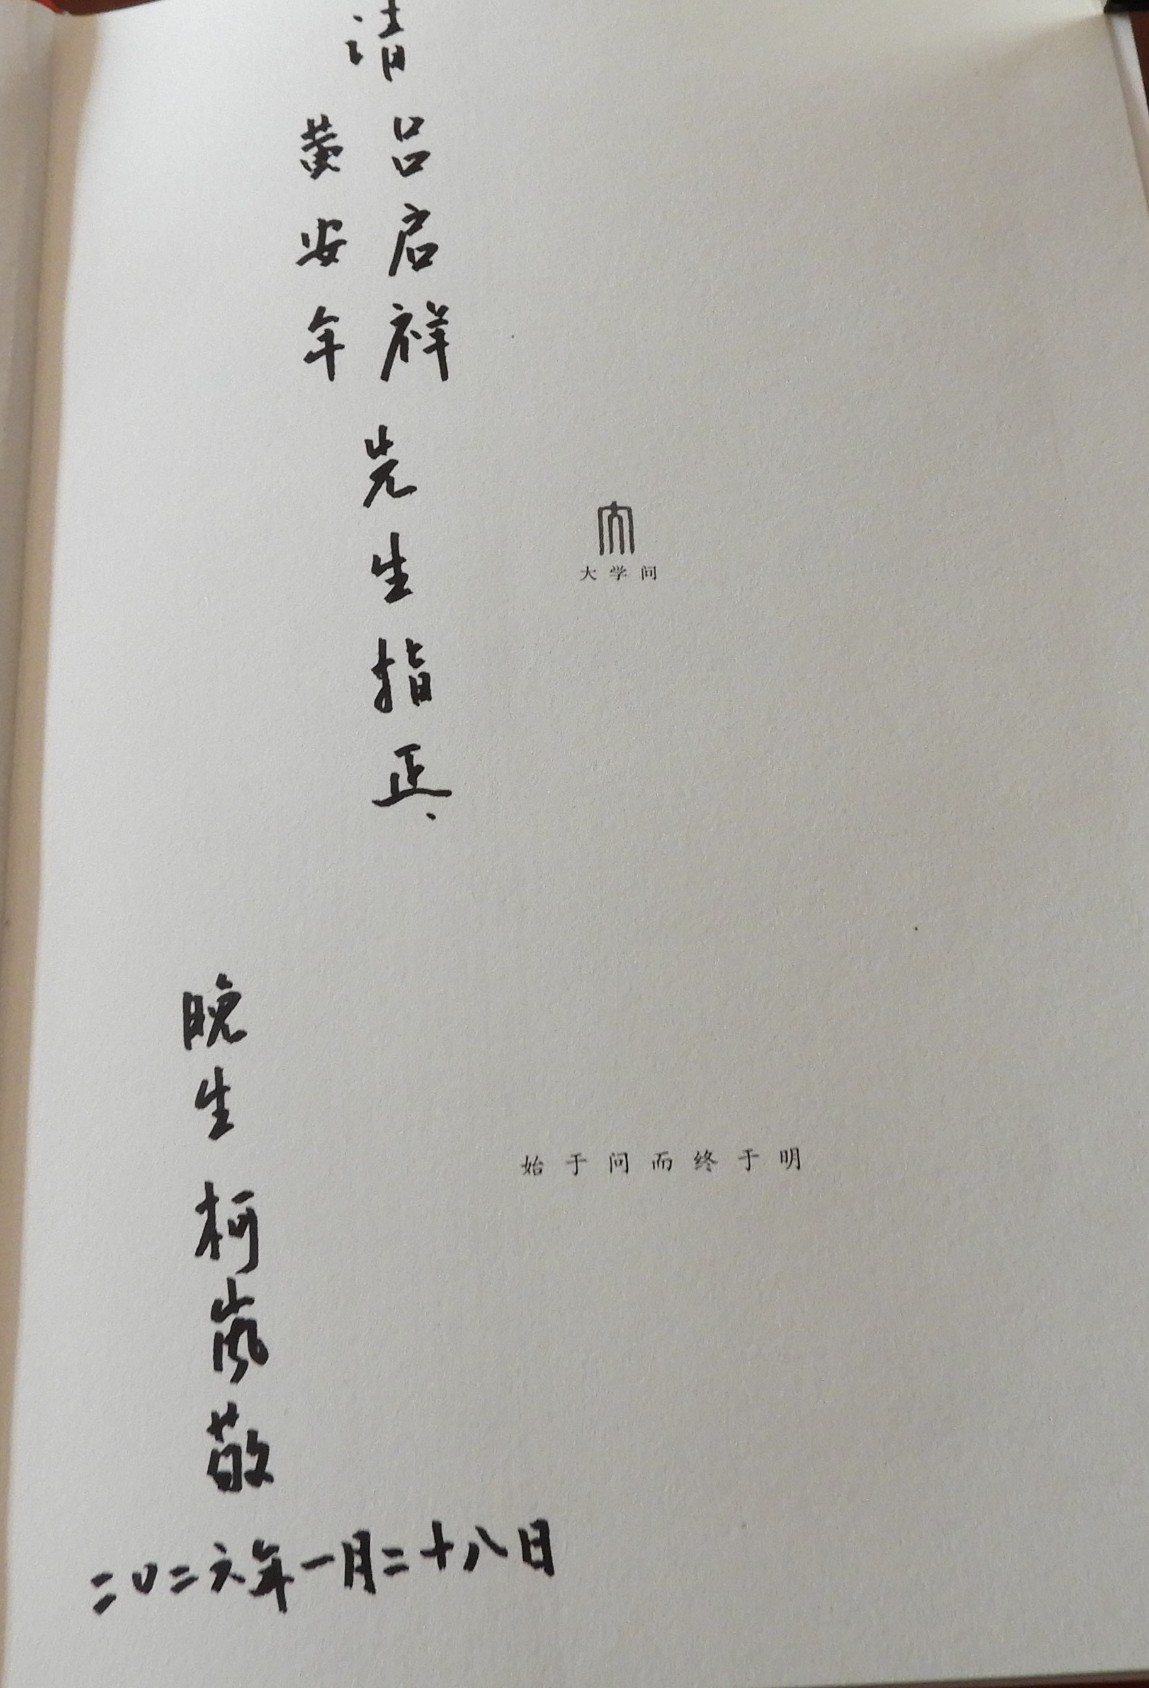 请
吕启祥
黄安年
先生指正、
晚生柯岚敬
二〇二六年一月二十八日
大学问
始于问而终于明